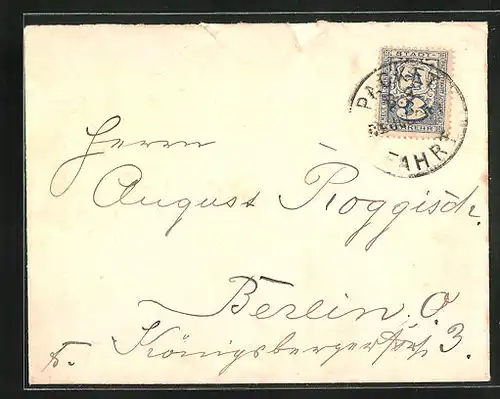 STADT-
VERKEHR
PACKET
FAHRT
Herrn
August Roggisch.
Berlin. O.
Königsbergerstr. 3.